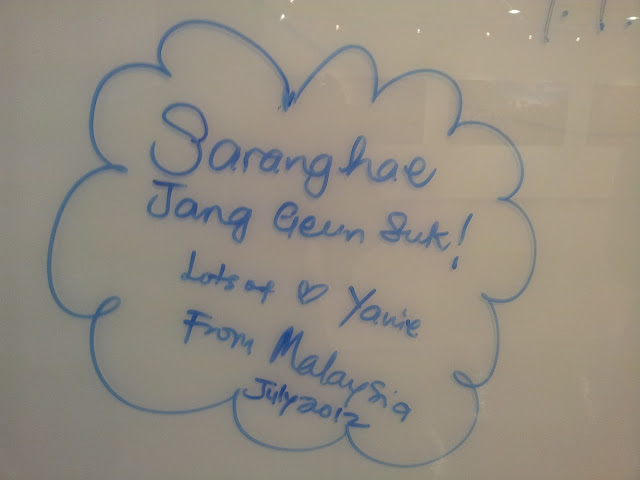 Saranghae
Jang Geun Suk!
Lots of ♡ Yanie
From Malaysia
July 2012